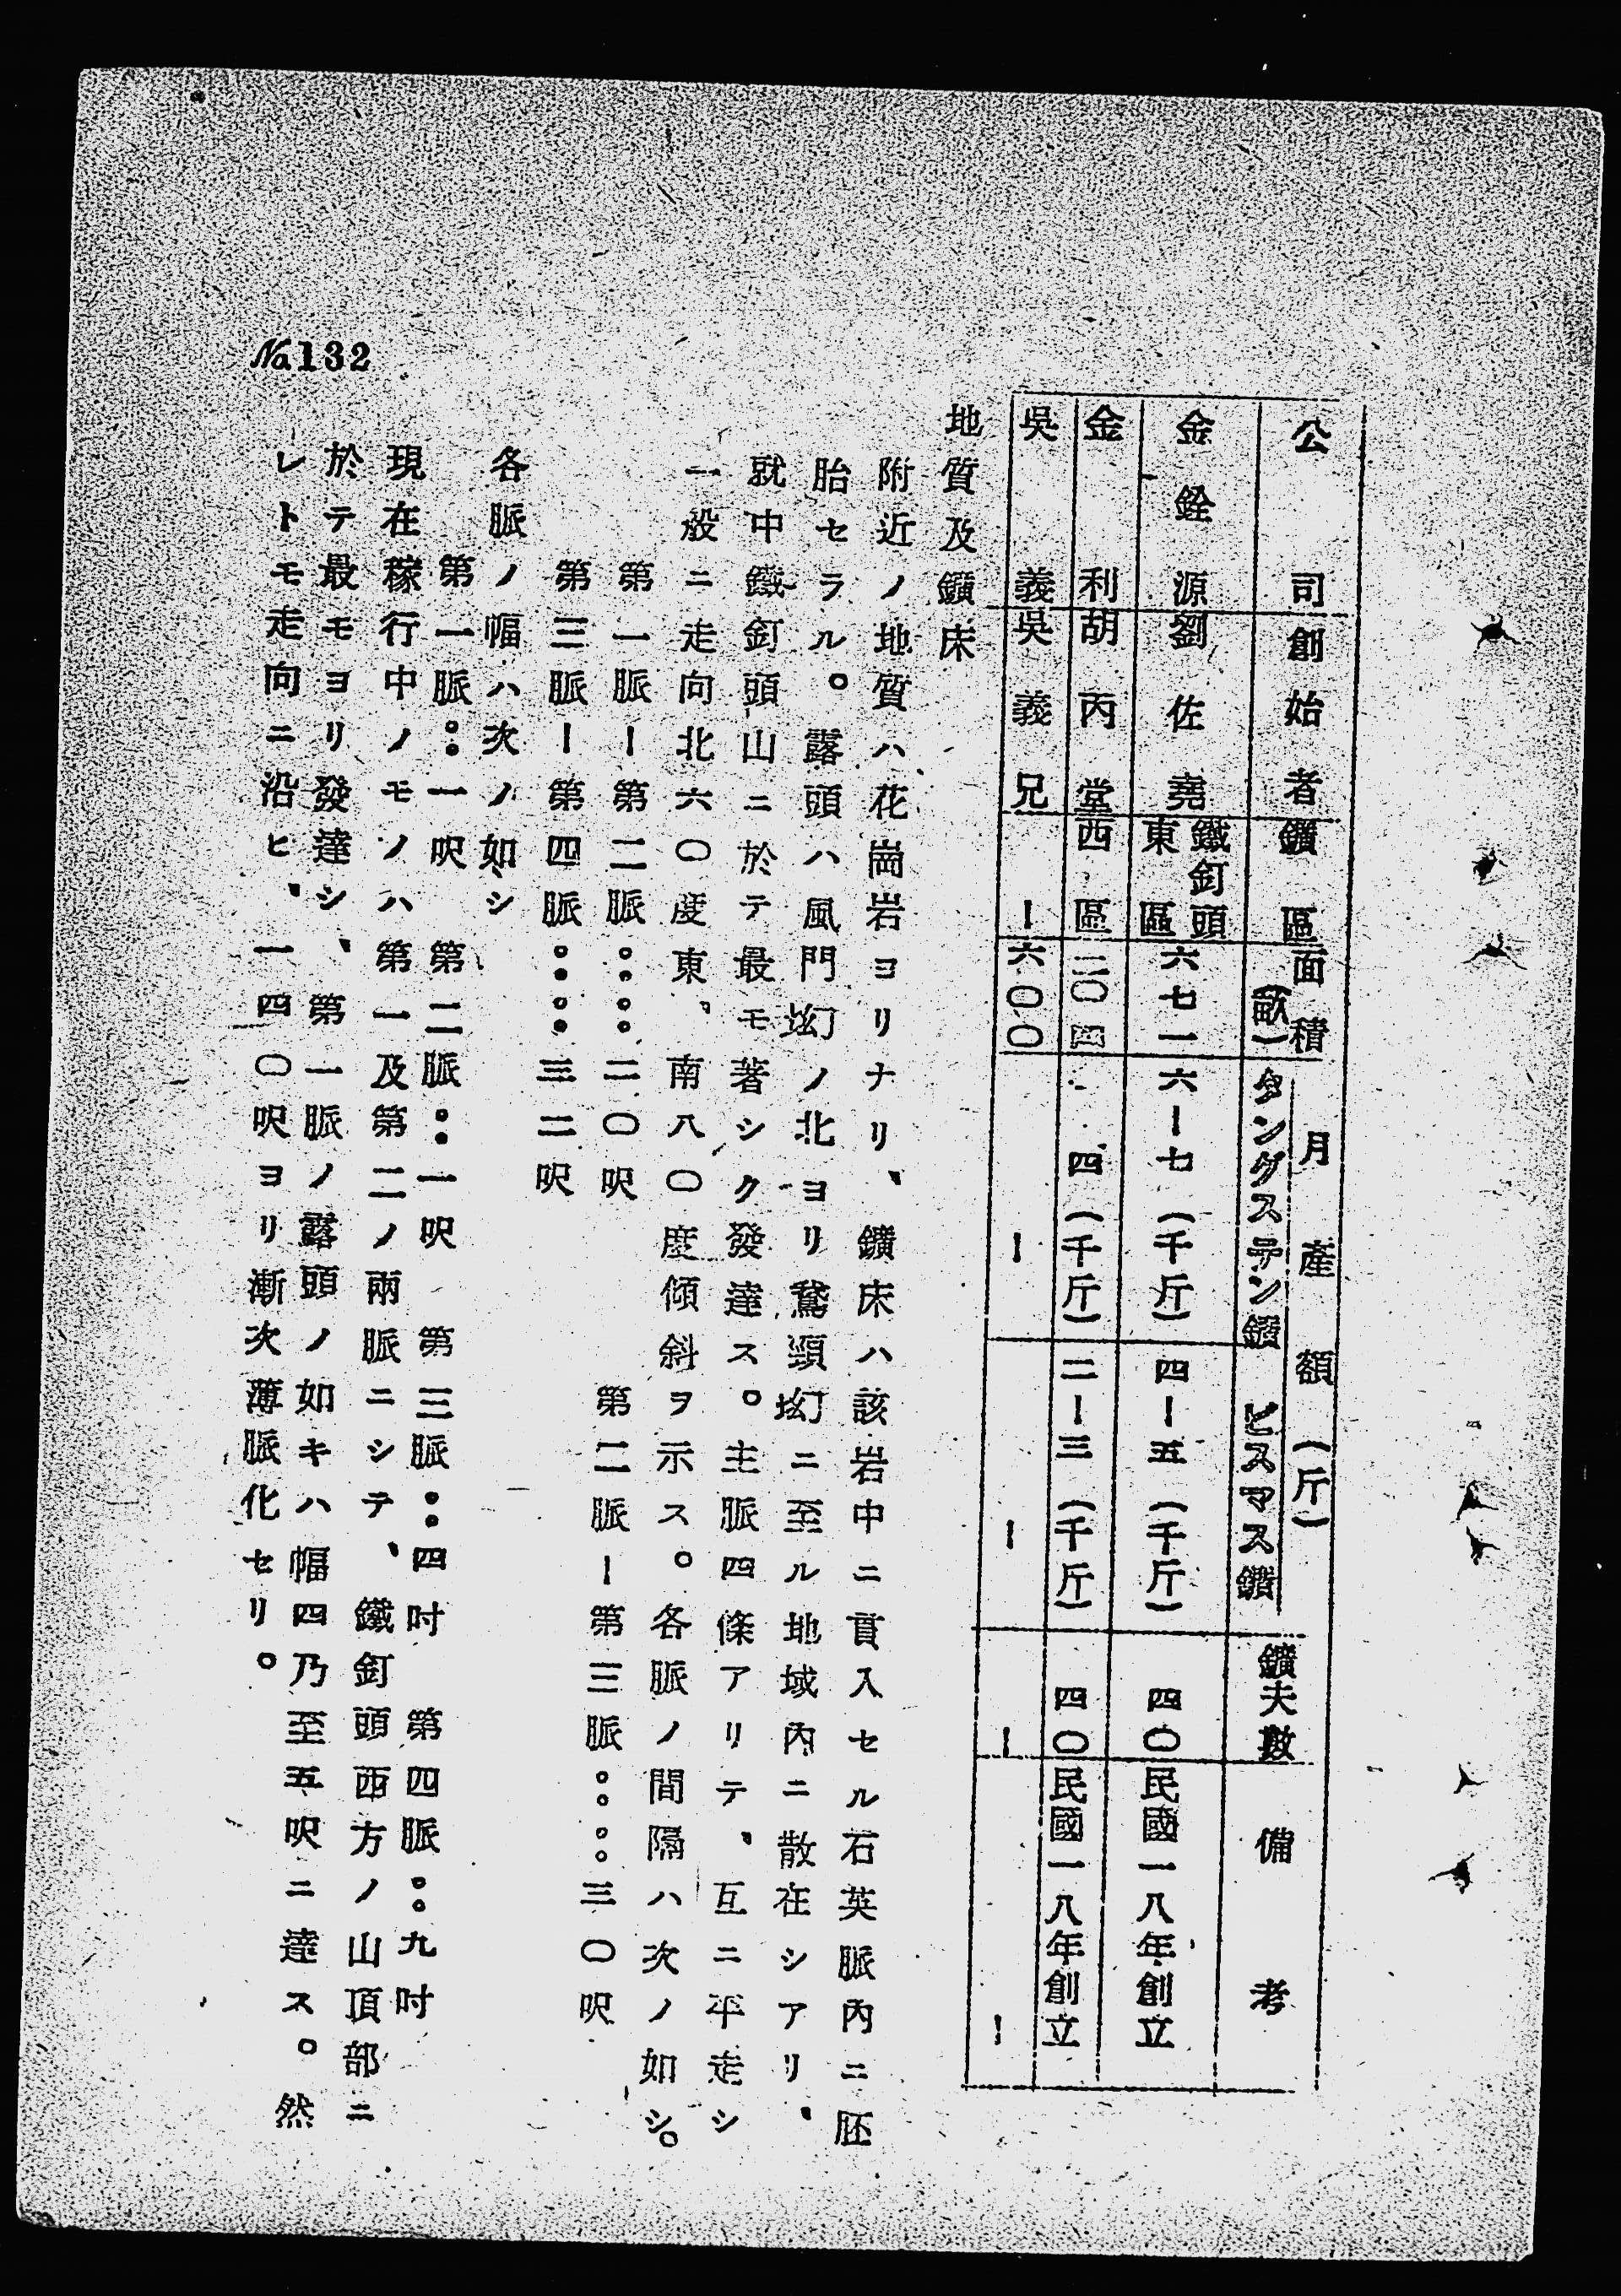 公司 創始者 鑛區 面積(畝) 月產額(斤) タングステン鑛 ビスマス鑛 鑛夫數 備考
金銓源 劉佐堯 鐵釘頭東區 六七一 六ー七(千斤) 四ー五(千斤) 四〇 民國一八年創立
金利 胡丙堂 西區 二〇四 四(千斤) 二ー三(千斤) 四〇 民國一八年創立
吳義 吳義兄 ー 六〇〇 ー ー ー ー
地質及鑛床
附近ノ地質ハ花崗岩ヨリナリ、鑛床ハ該岩中ニ貫入セル石英脈內ニ胚
胎セラル。露頭ハ風門㘭ノ北ヨリ鵞頸㘭ニ至ル地域內ニ散在シアリ、
就中鐵釘頭山ニ於テ最モ著シク發達ス。主脈四條アリテ、互ニ平走シ
一般ニ走向北六〇度東、南八〇度傾斜ヲ示ス。各脈ノ間隔ハ次ノ如シ。
第一脈ー第二脈::::二〇呎 第二脈ー第三脈::::三〇呎
第三脈ー第四脈::::三二呎
各脈ノ幅ハ次ノ如シ
第一脈::一呎 第二脈::一呎 第三脈::四吋 第四脈::九吋
現在稼行中ノモノハ第一及第二ノ兩脈ニシテ、鐵釘頭西方ノ山頂部ニ
於テ最モヨリ發達シ、第一脈ノ露頭ノ如キハ幅四乃至五呎ニ達ス。然
レトモ走向ニ沿ヒ、一四〇呎ヨリ漸次薄脈化セリ。
№132